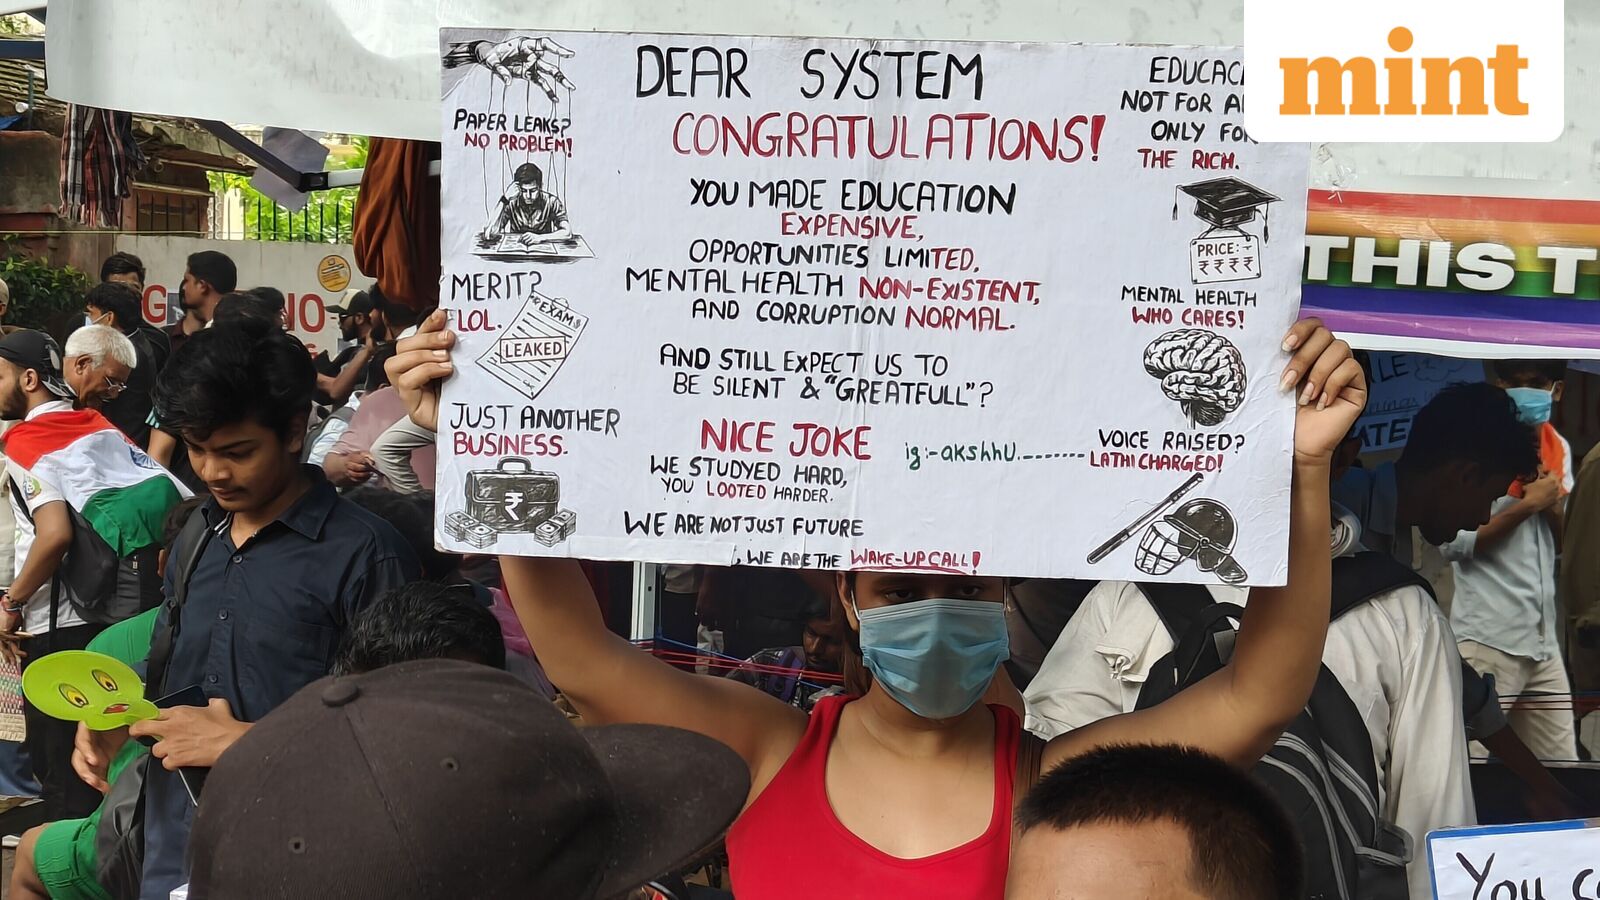 mint
DEAR SYSTEM
CONGRATULATIONS!
YOU MADE EDUCATION
EXPENSIVE,
OPPORTUNITIES LIMITED,
MENTAL HEALTH NON-EXISTENT,
AND CORRUPTION NORMAL.
AND STILL EXPECT US TO
BE SILENT & "GREATFULL"?
NICE JOKE
WE STUDYED HARD,
YOU LOOTED HARDER.
WE ARE NOT JUST FUTURE
, WE ARE THE WAKE-UP CALL!
ig:-akshhu.--------
PAPER LEAKS?
NO PROBLEM!
MERIT?
LOL.
EXAMS
LEAKED
JUST ANOTHER
BUSINESS.
₹
NOT FOR
ONLY
THE RICH.
PRICE:-
₹₹₹₹
MENTAL HEALTH
WHO CARES!
VOICE RAISED?
LATHI CHARGED!
THIS T
NO
You